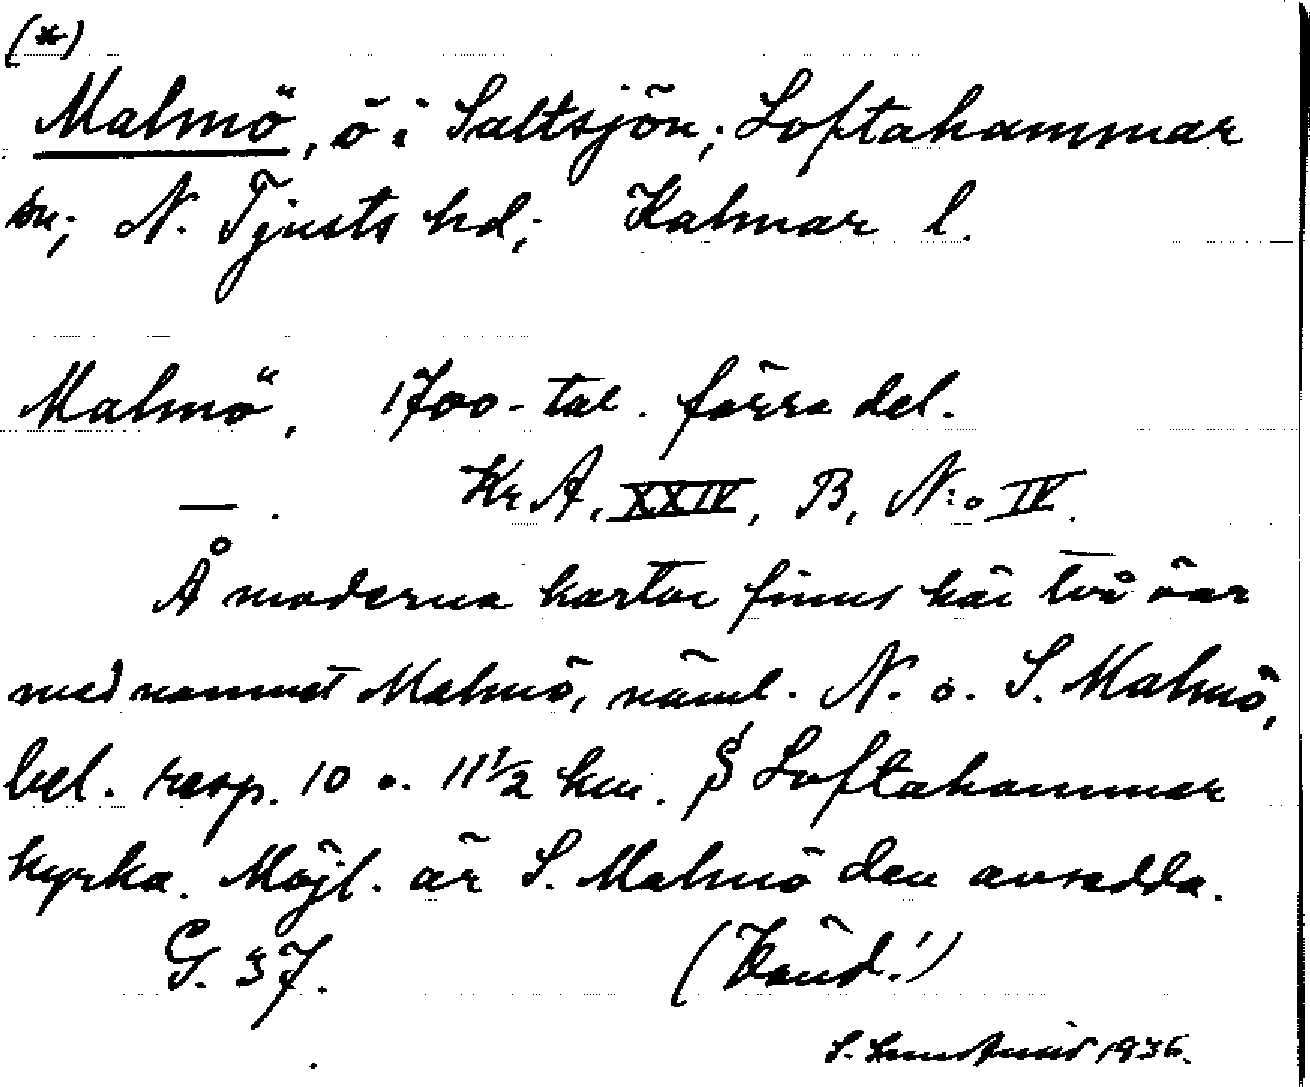 (*)
Malmö, ö i Saltsjön; Loftahammar
sn; N. Tjusts hd; Kalmar l.
Malmö, 1700-tal. förra del.
— . KrA, XXIV, B, N:o IV.
Å moderna kartor finns här två öar
med namnet Malmö, näml. N. o. S. Malmö,
bel. resp. 10 o. 11 1/2 km. S Loftahammar
kyrka. Möjl. är S. Malmö den avsedda.
G. 37. (Känd!)
S. 1936.